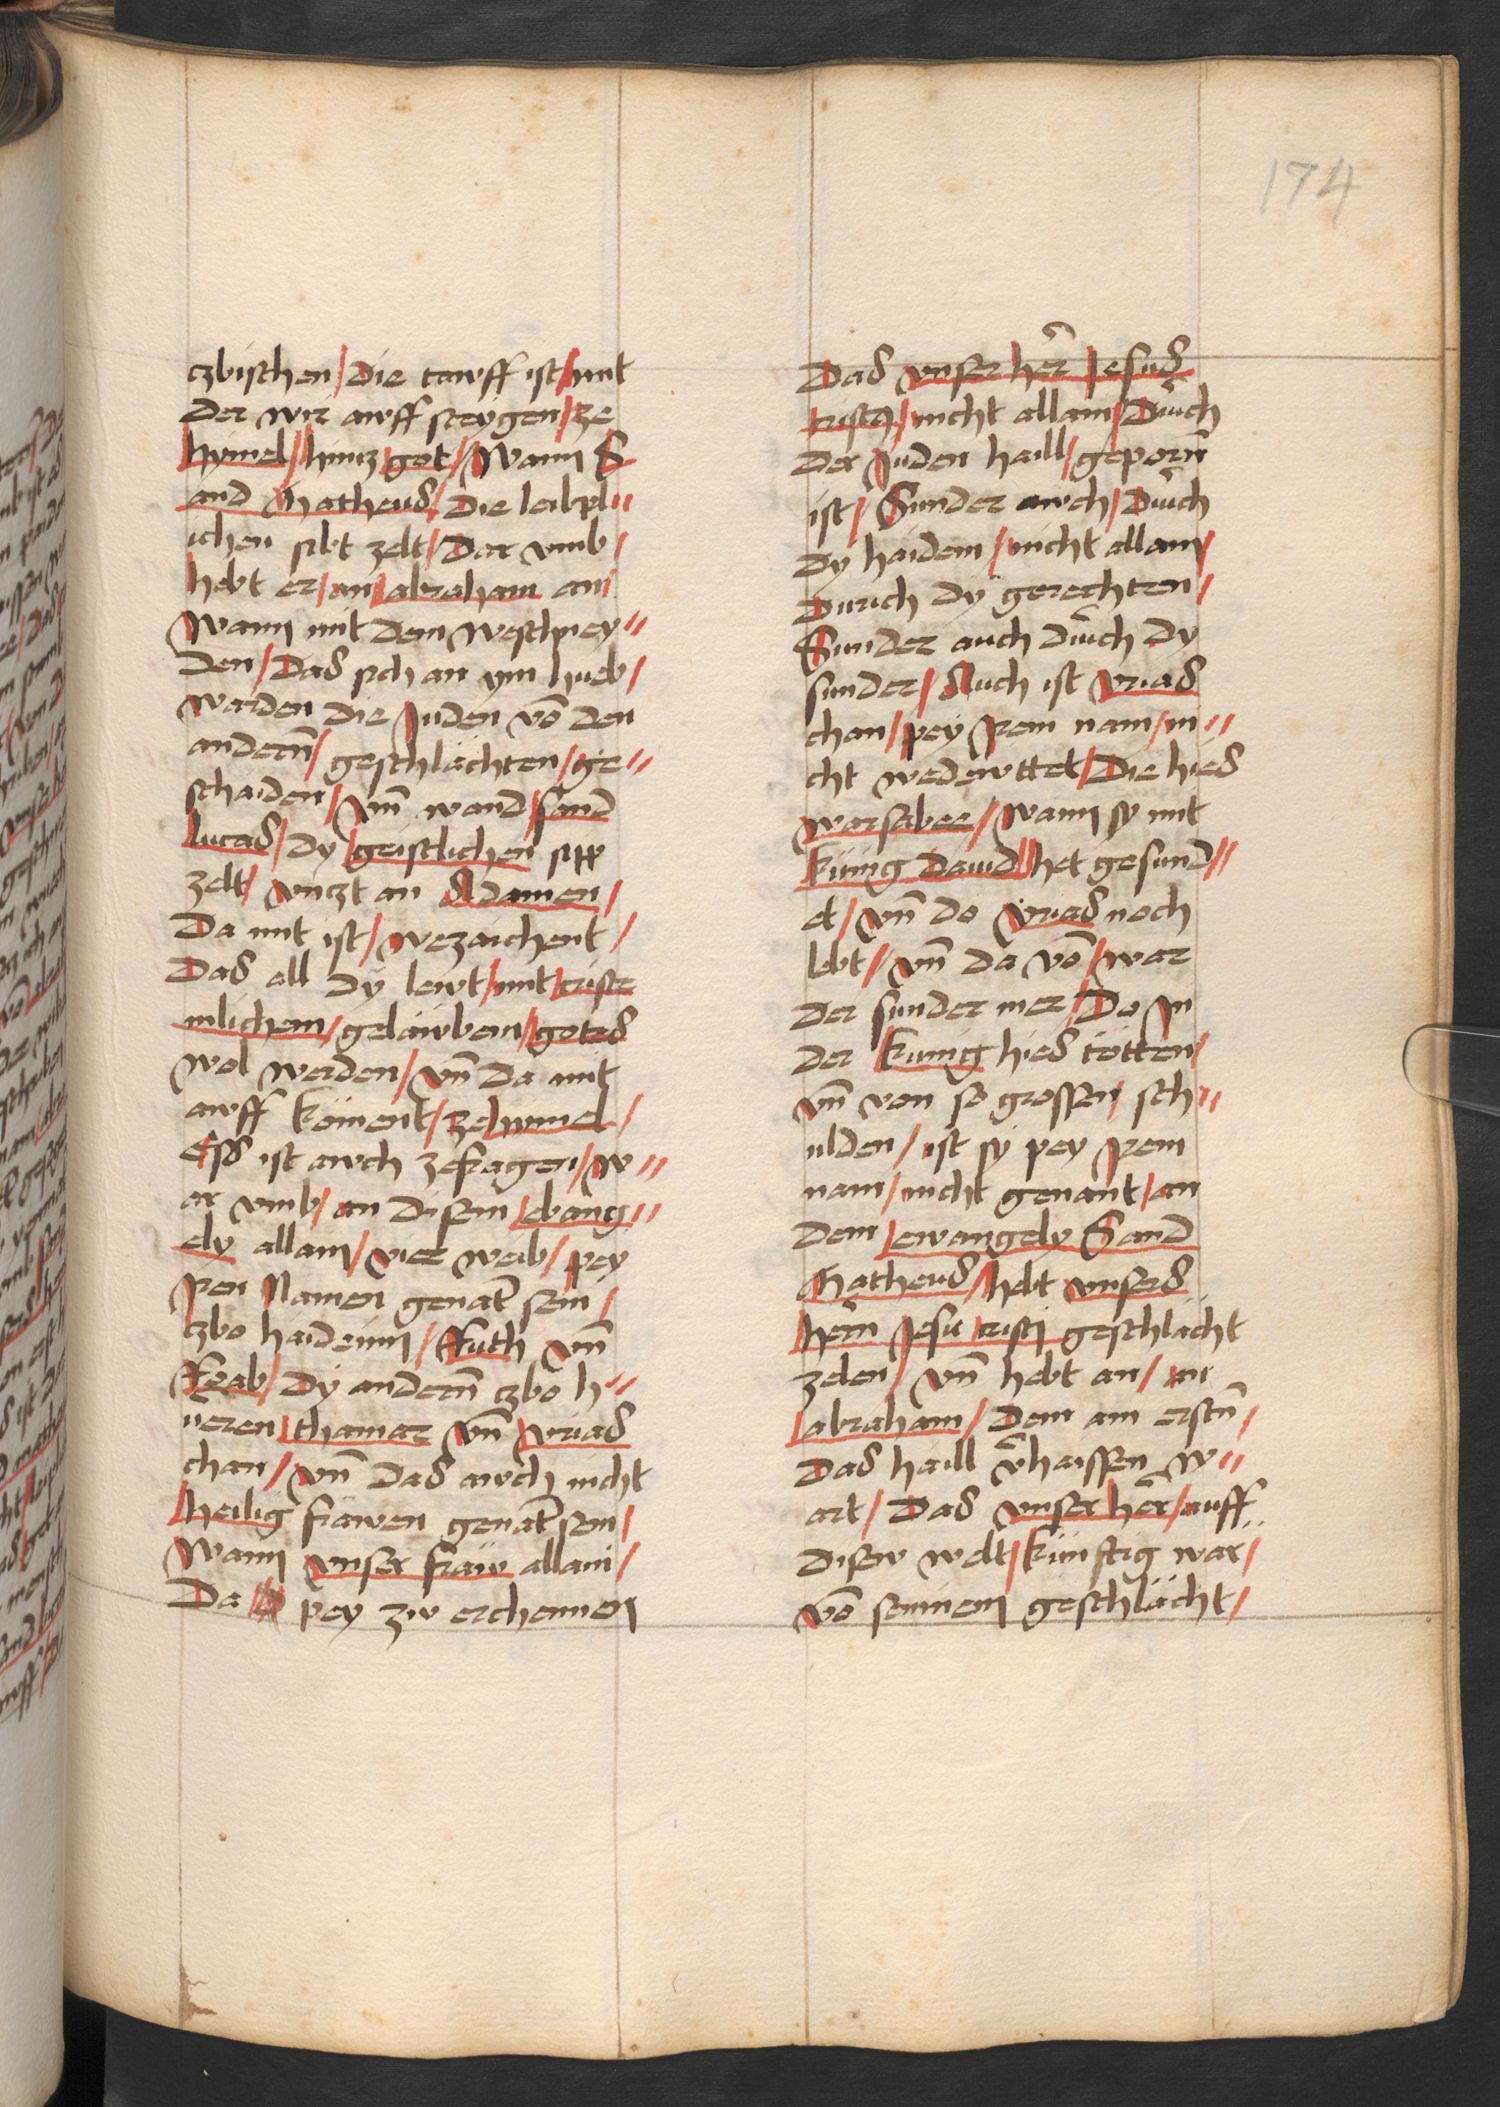 174
czbischen / die tawff ist / mit
der wir awff steygen / ze
hymel / hincz got / Wann S
and Matheus / die leibpl〃
ichen sibt zelt / Dar vmb /
hebt er / an / abraham an /
Wann mit dem weschney〃
den / Das sich an ym hueb /
warden die Juden vō den
anderñ / geschlächten / ge〃
schaiden / vnñ wand / sand
lucas / dy / geistlichen sipp
zelt / vnczt an Adamen /
Da mit ist / wezaichent /
Das all dy lewt / mit / crist
mlichem / geläwbem / gotes
wol werden / vnñ da mit
awff köment / zehymel /
Ess ist awch zefragen / w〃
ar vmb / an disem / ebang〃
ely allain / vier weib / pey
Iren Namen genāt sein /
czbo haideinn / Ruth vnñ
Raab / dy anderñ czbo h〃
ueren / thamar vnñ vrias
chan / vnñ das awch nicht
heilig frawen genāt sein /
Wann vnser fraw allain /
Da / pey zw erchennen
Das vnser her̄ Jesus
cristus / nicht allain / Durch
der Juden haill / geporñ
ist / Sunder awch / Durch
dy haiden / nicht allain /
Durich dy gerechten /
Sunder auch durch dy
sunder / Auch ist vrias
chan / pey Irem nam / ni〃
cht wedewttet / Die hies
warsabee / Wann sy mit
künig dauid / het gesund〃
et / vnñ do vrias noch
lebt / vnñ da vō / war
der sunder mer / Do In
der kunig hies tötten /
vnñ von so grossen / sch〃
ulden / ist sy pey Irem
nam / nicht genant / an
dem / ewangely Sand
Matheus / hebt vnsers
herñ Jesu cristi geschlächt
zelen / vnñ hebt an / an
abraham / Dem am erstñ /
Das haill v̄haissen w〃
art / Das vnser her̄ / auff
disew welt / künftig war /
vō seinem geschlächt /